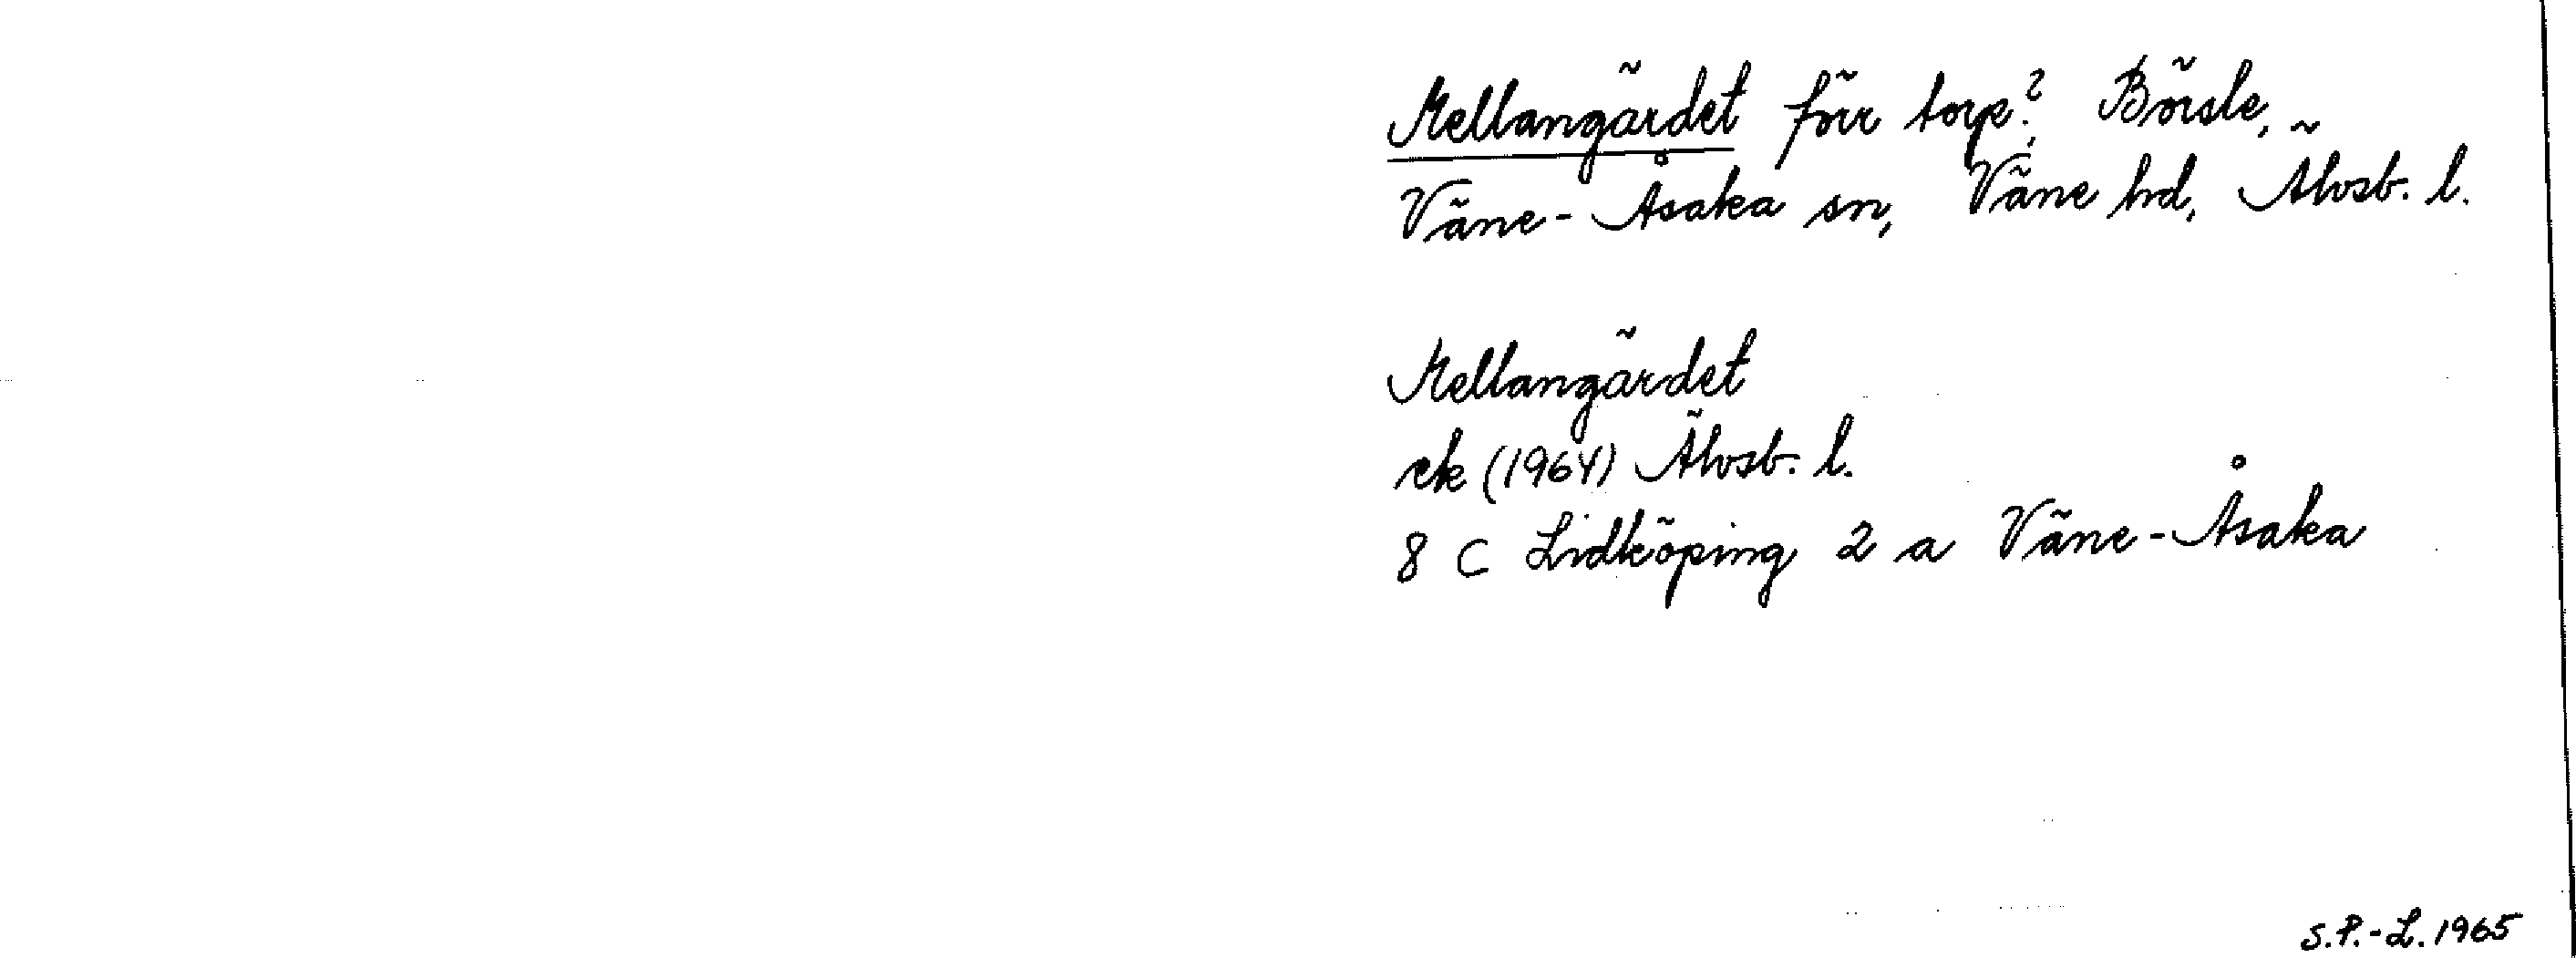 Mellangärdet förr torp?, Börsle,
Väne-Åsaka sn, Väne hd, Älvsb. l.
Mellangärdet
ek (1964) Älvsb. l.
8 C Lidköping 2 a Väne-Åsaka
S.P.-L. 1965